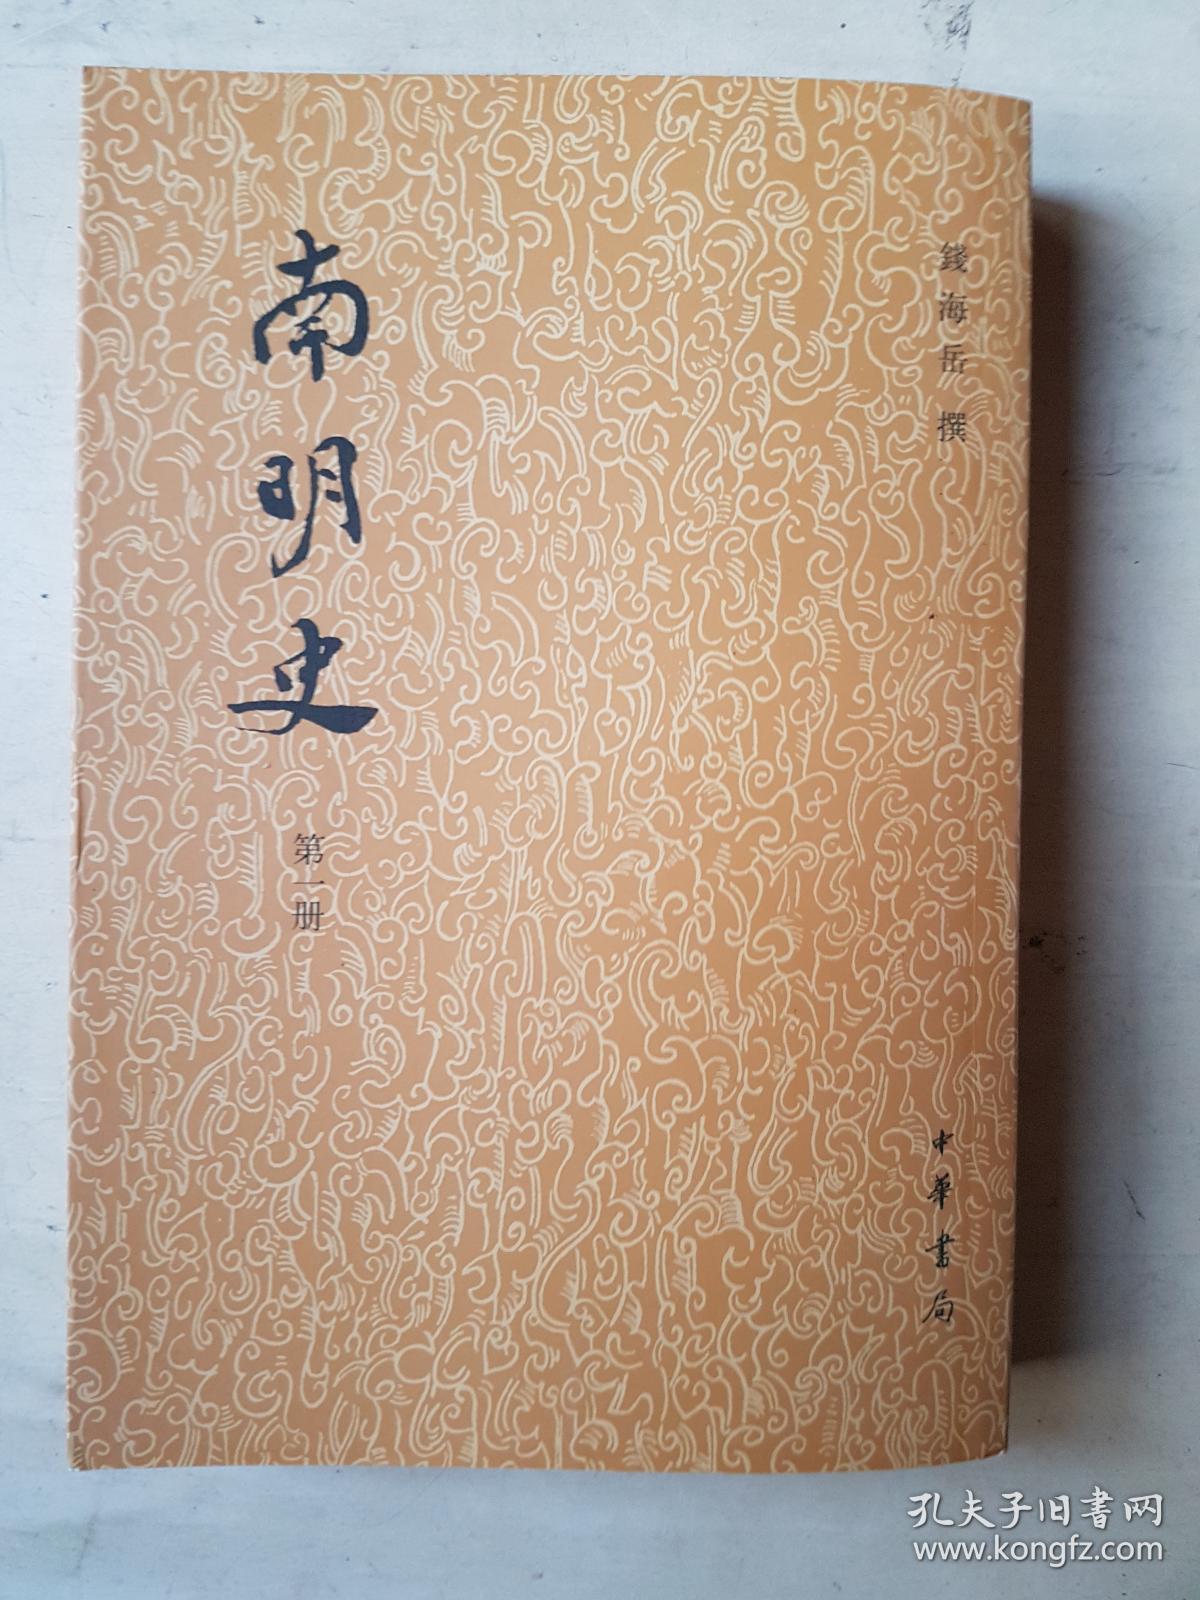 錢海岳撰
南明史
第一册
中華書局
孔夫子旧書网
www.kongfz.com